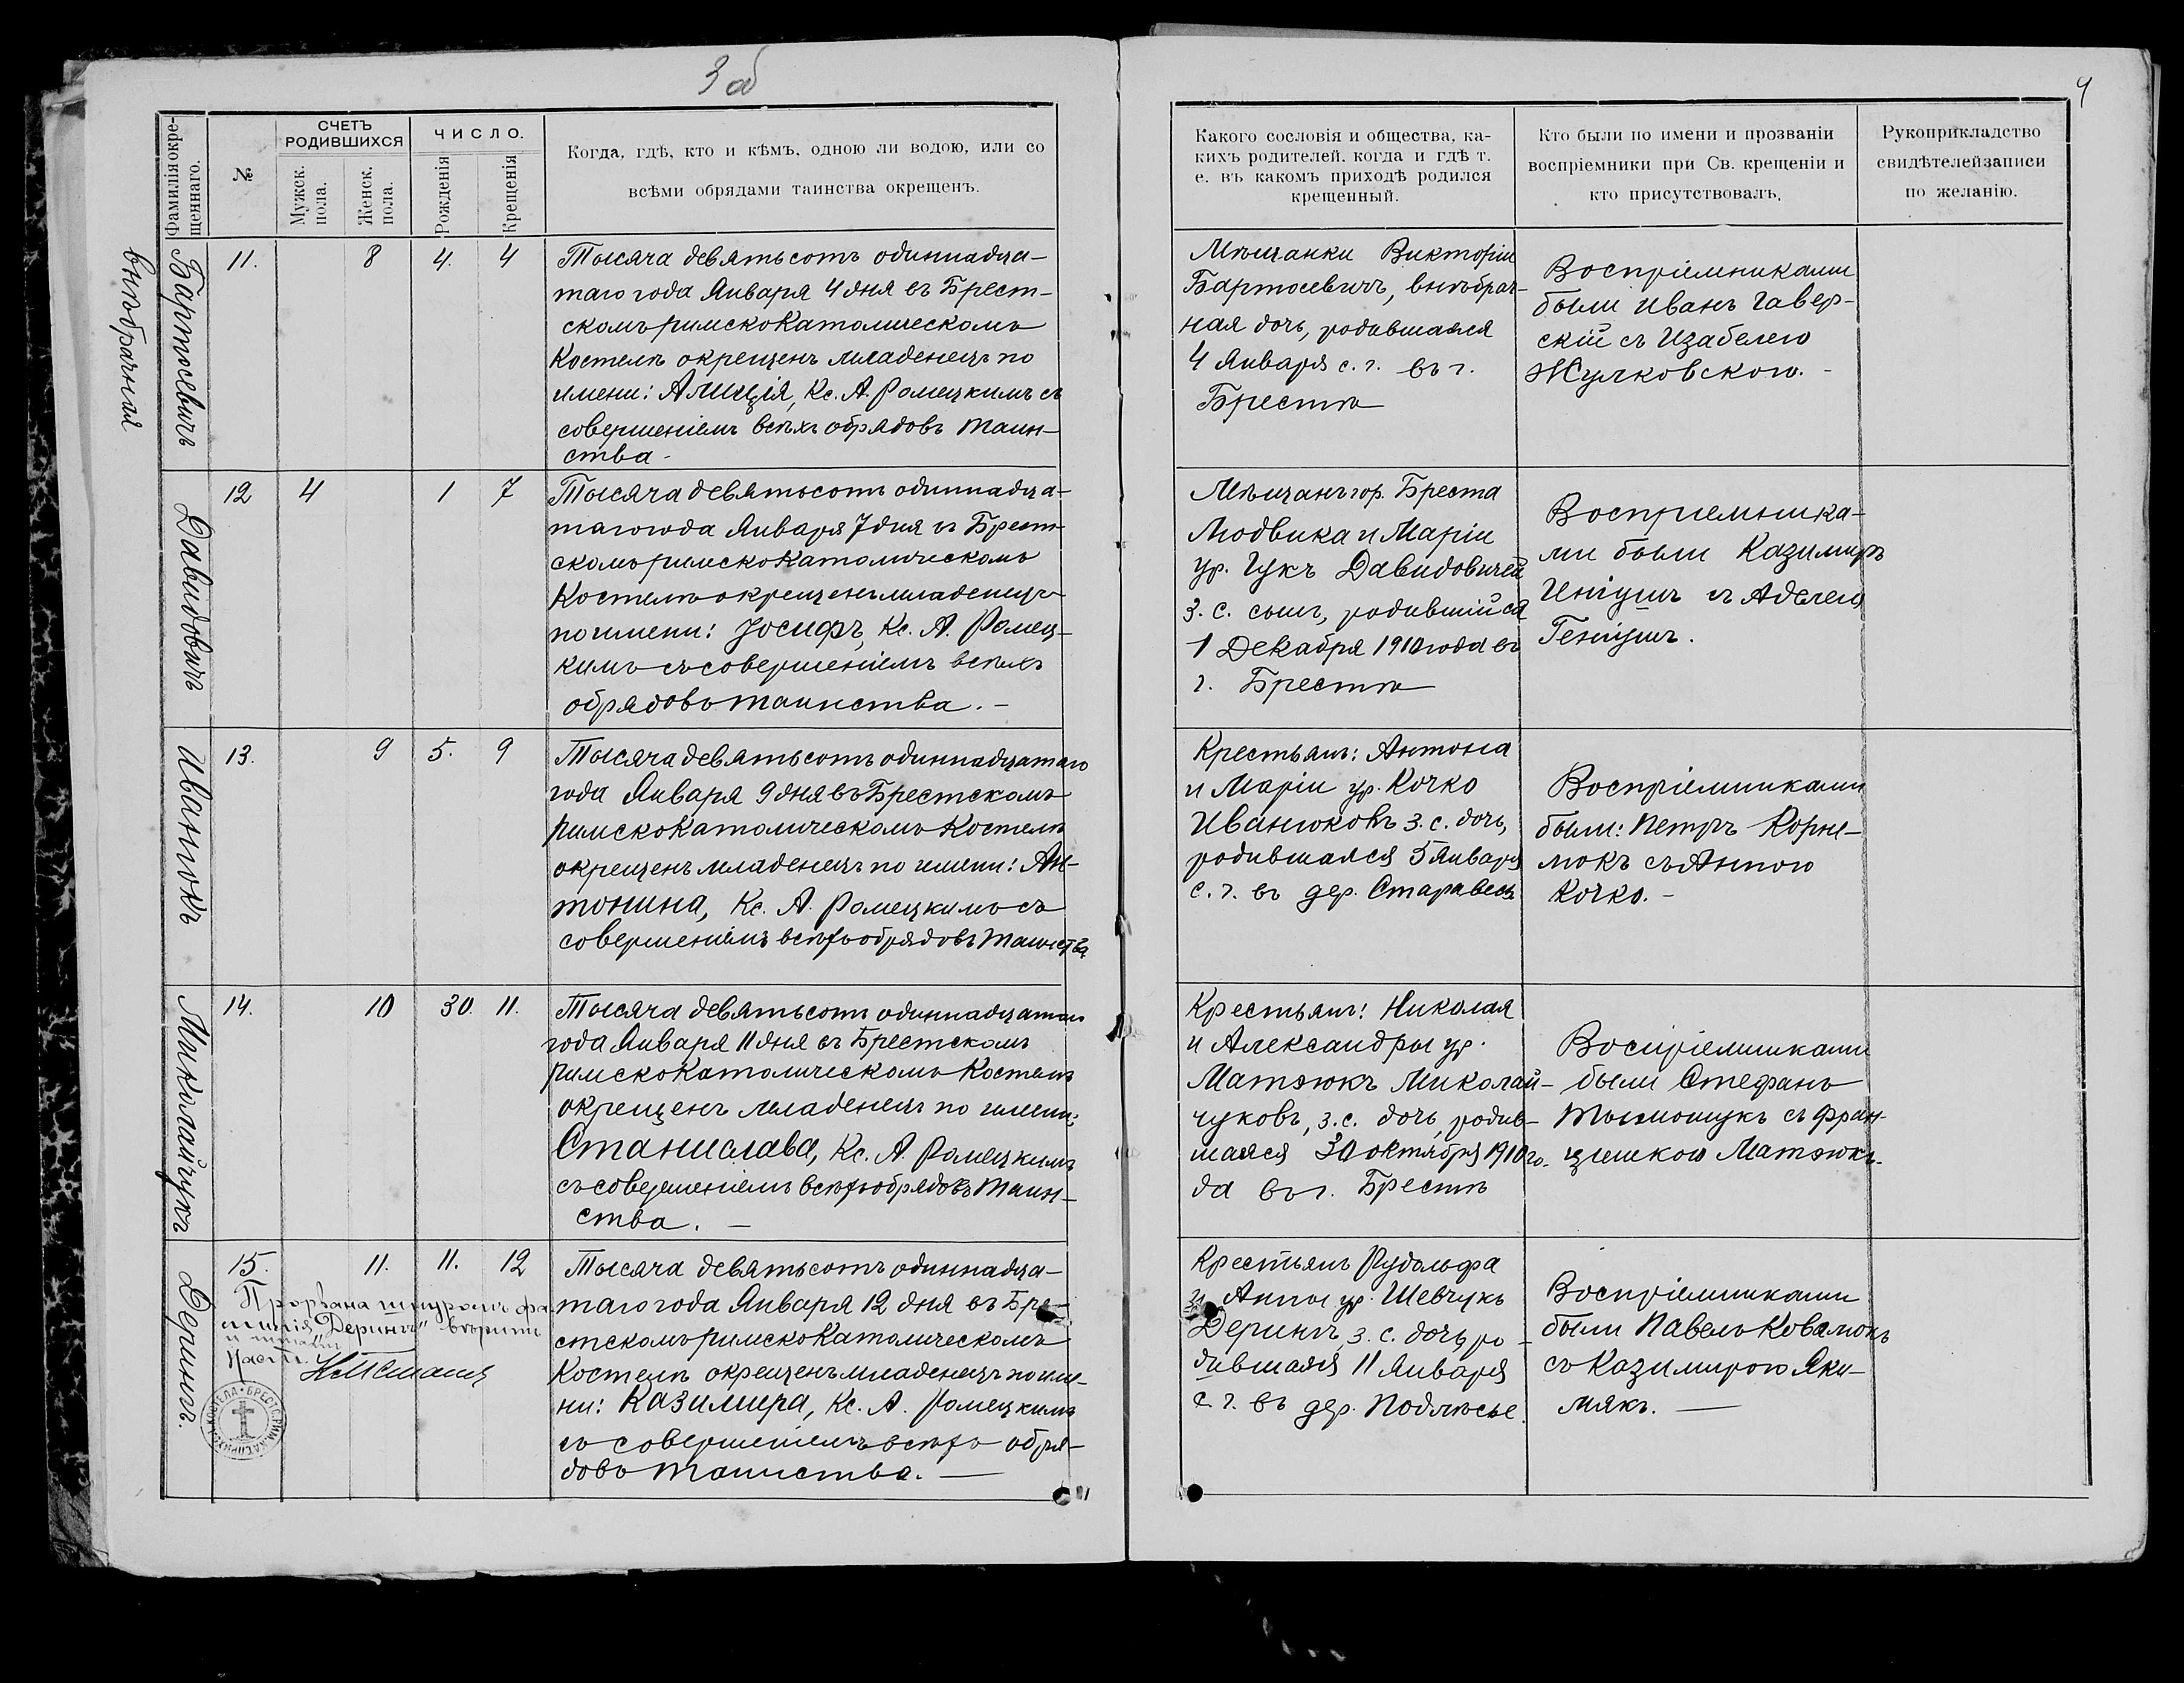 3 об
4
Фамилія окре-
щеннаго.
№
СЧЕТЪ
РОДИВШИХСЯ
Мужск.
пола.
Женск.
пола.
ЧИСЛО.
Рожденія
Крещенія
Когда, гдѣ, кто и кѣмъ, одною ли водою, или со
всѣми обрядами таинства окрещенъ.
Какого сословія и общества, ка-
кихъ родителей, когда и гдѣ т.
е. въ какомъ приходѣ родился
крещенный.
Кто были по имени и прозваніи
воспріемники при Св. крещеніи и
кто присутствовалъ.
Рукоприкладство
свидѣтелей записи
по желанію.
Бартосевичъ
внѣбрачная
11.
8
4.
4
Тысяча девятьсотъ одиннадца-
таго года Января 4 дня въ Брест-
скомъ римскокатолическомъ
Костелѣ окрещенъ младенецъ по
имени: Алиція, Кс. А. Ромецкимъ съ
совершеніемъ всѣхъ обрядовъ Таин-
ства.-
Мѣщанки Викторіи
Бартосевичъ, внѣбрач-
ная дочь, родившаяся
4 Января с. г. въ г.
Брестѣ
Воспріемниками
были Иванъ Гавер-
скій съ Изабелею
Жулковскою. -
Давидовичъ
12
4
1
7
Тысяча девятьсотъ одиннадца-
таго года Января 7 дня въ Брест-
скомъ римскокатолическомъ
Костелѣ окрещенъ младенецъ
по имени: Іосифъ, Кс. А. Ромец-
кимъ съ совершеніемъ всѣхъ
обрядовъ таинства. -
Мѣщанъ гор. Бреста
Людвика и Маріи
ур. Гукъ Давидовичей
з. с. сынъ, родившійся
1 Декабря 1910 года въ
г. Брестѣ
Воспріемника-
ми были Казимиръ
съ Аделею
Геніушъ.
Иванюкъ
13.
9
5.
9
Тысяча девятьсотъ одиннадцатаго
года Января 9 дня въ Брестскомъ
римскокатолическомъ Костелѣ
окрещенъ младенецъ по имени: Ан-
тонина, Кс. А. Ромецкимъ съ
совершеніемъ всѣхъ обрядовъ таинства
Крестьянъ: Антона
и Маріи ур. Кочко
Иванюковъ з. с. дочь,
родившаяся 5 Января
с. г. въ дер. Старавесь
Воспріемниками
были: Петръ Корни-
люкъ съ Анною
Кочко. -
Миколайчукъ
14.
10
30.
11.
Тысяча девятьсотъ одиннадцатаго
года Января 11 дня въ Брестскомъ
римскокатолическомъ Костелѣ
окрещенъ младенецъ по имени:
Станислава, Кс. А. Ромецкимъ
съ совершеніемъ всѣхъ обрядовъ Таин-
ства. -
Крестьянъ: Николая
и Александры ур.
Матэюкъ Миколай-
чуковъ, з. с. дочь, родив-
шаяся 30 октября 1910 го-
да въ г. Брестѣ
Воспріемниками
были Стефанъ
Тымошукъ съ Фран-
цишкою Матэюкъ.
Дерингъ.
15.
11.
11.
12
Прорвана шнуромъ фа-
милія "Дерингъ" вѣрить
Наст.
БРЕСТС. РИМ. КАТ. КОСТЕЛА
Тысяча девятьсотъ одиннадца-
таго года Января 12 дня въ Бре-
стскомъ римскокатолическомъ
Костелѣ окрещенъ младенецъ по име-
ни: Казимира, Кс. А. Ромецкимъ
съ совершеніемъ всѣхъ обря-
довъ таинства. —
Крестьянъ Рудольфа
и Анны ур. Шевчукъ
Дерингъ, з. с. дочь, ро-
дившаяся 11 Января
с. г. въ дер. Подлѣсье.
Воспріемниками
были Павелъ Ковалюкъ
съ Казимирою Яки-
мякъ. —